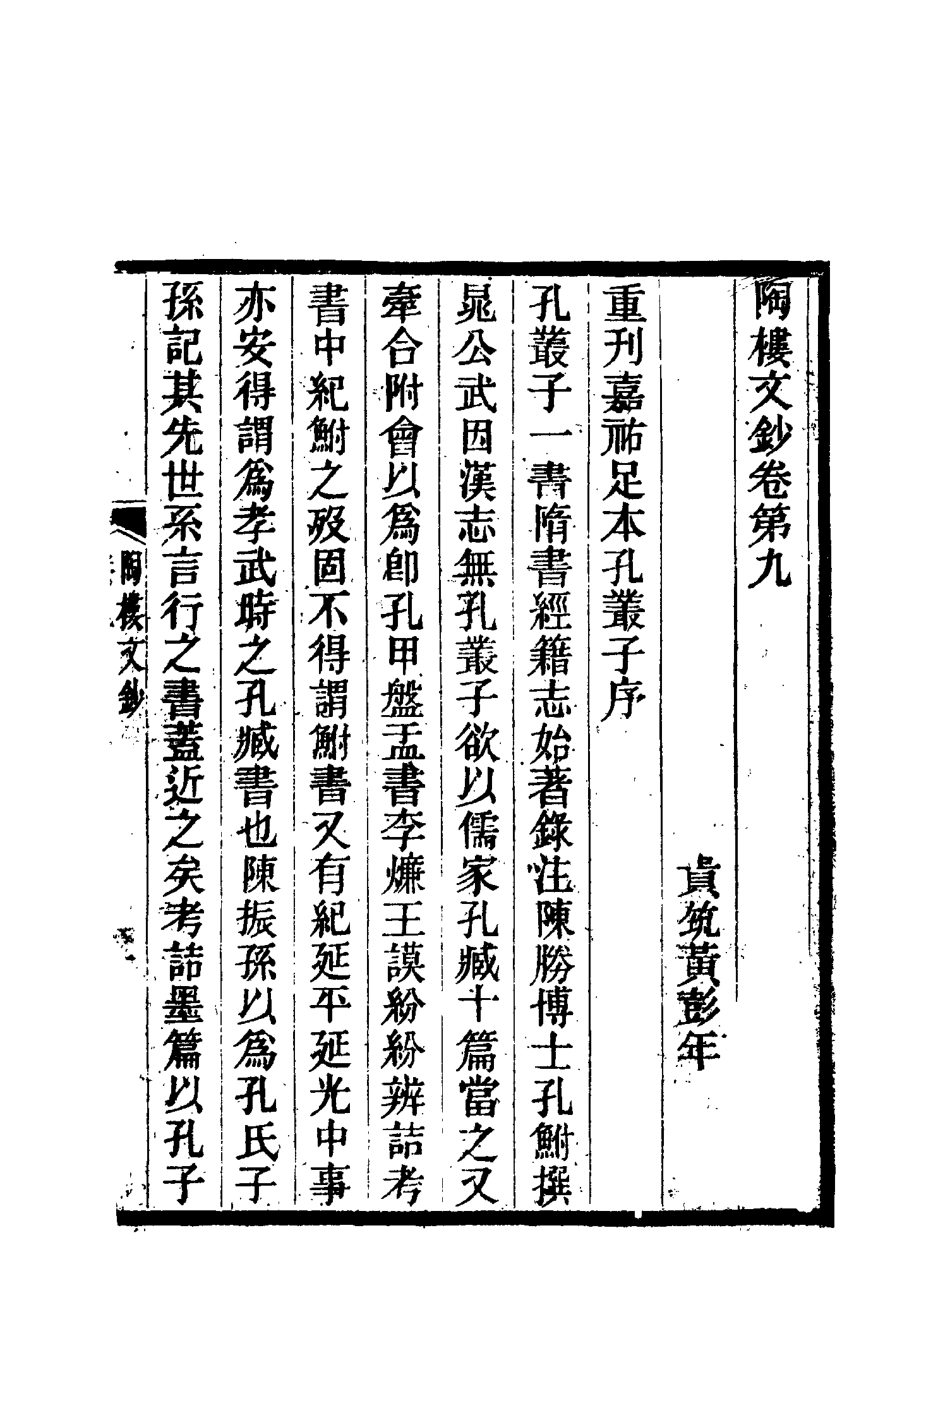 陶樓文鈔卷第九
貴筑黃彭年
重刊嘉祐足本孔叢子序
孔叢子一書隋書經籍志始著錄注陳勝博士孔鮒撰
晁公武因漢志無孔叢子欲以儒家孔臧十篇當之又
牽合附會以爲卽孔甲盤盂書李燫王謨紛紛辨詰考
書中紀鮒之歿固不得謂鮒書又有紀延平延光中事
亦安得謂爲孝武時之孔臧書也陳振孫以爲孔氏子
孫記其先世系言行之書蓋近之矣考詰墨篇以孔子
陶樓文鈔